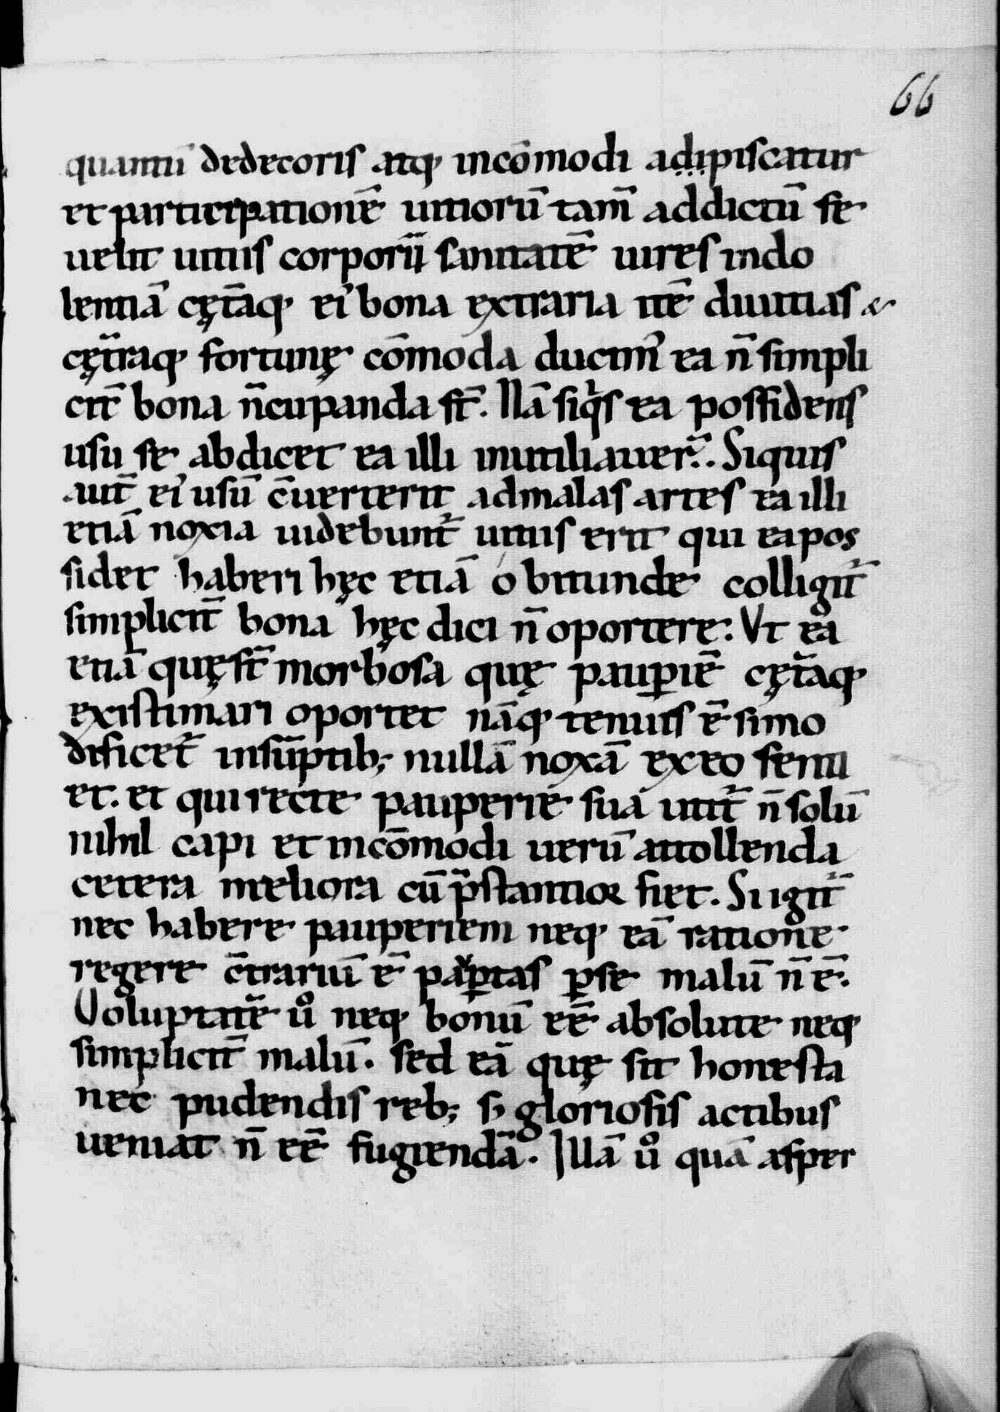 66
quantū dedecoris atq; incōmodi adipiscatur
et participationē uitiorū tam̄ addictū se
uelit uitiis corporū sanitatē uires indo
lentiā cęt̄aq; ei' bona extraria itē diuitias &
cęt̄raq; fortunę cōmoda ducim' ea n̄ simpli
cit̄ bona n̄cupanda st̄. Nā siq's ea possidens
usu se abdicet ea illi inutilia uer̄. Siquis
aut̄ ei' usū c̄uerterit ad malas artes ea illi
etiā noxia uidebunt̄ uitiis erit qui ea pos
sidet haberi hęc etiā obitunde colligit̄
simplicit̄ bona hęc dici n̄ oportere: Vt ea
etiā quę st̄ morbosa quę paupiē cęt̄aq;
existimari oportet nāq; tenuis ē simo
dificet̄ insūptib; nullā noxā ex eo senti
et. et qui recte pauperiē suā utit̄ n̄ solū
nihil capi et incōmodi uerū attollenda
cetera meliora cū p̄stantior fiet. Si igit̄
nec habere pauperiem neq; eā ratione
regere c̄trariū ē paup̱tas p̱ se malū n̄ ē.
Voluptatē u° neq; bonū eē absolute neq;
simplicit̄ malū. sed eā quę sit honesta
nec pudendis reb; s; gloriosis actibus
ueniat n̄ eē fugiendā. Illā u° quā asper